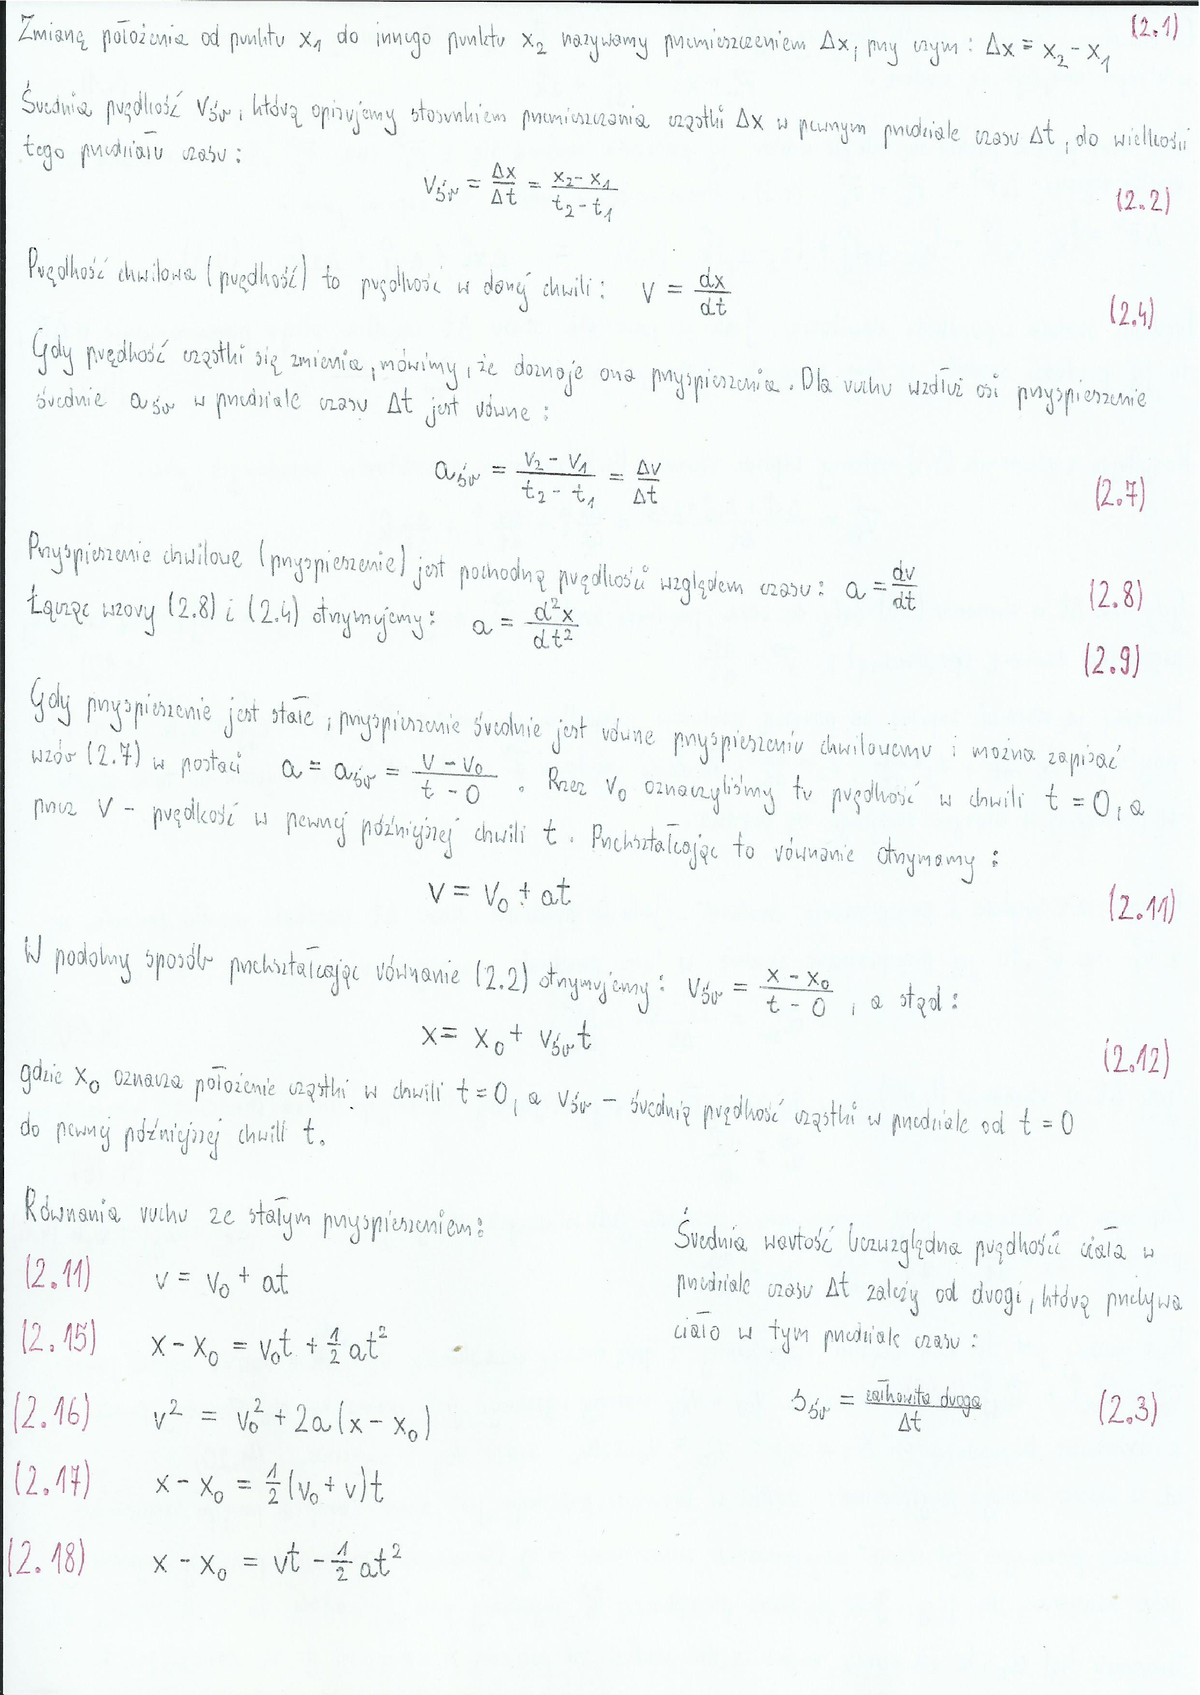 Zmianę położenia od punktu x₁ do innego punktu x₂ nazywamy przemieszczeniem Δx, przy czym: Δx = x₂ - x₁ (2.1)
Średnia prędkość vśr, którą opisujemy stosunkiem przemieszczania cząstki Δx w pewnym przedziale czasu Δt, do wielkości
tego przedziału czasu:
vśr = Δx/Δt = (x₂ - x₁)/(t₂ - t₁) (2.2)
Prędkość chwilowa (prędkość) to prędkość w danej chwili: v = dx/dt (2.4)
Gdy prędkość cząstki się zmienia, mówimy, że doznaje ona przyspieszenia. Dla ruchu wzdłuż osi przyspieszenie
średnie aśr w przedziale czasu Δt jest równe:
aśr = (v₂ - v₁)/(t₂ - t₁) = Δv/Δt (2.7)
Przyspieszenie chwilowe (przyspieszenie) jest pochodną prędkości względem czasu: a = dv/dt (2.8)
Łącząc wzory (2.8) i (2.4) otrzymujemy: a = d²x/dt² (2.9)
Gdy przyspieszenie jest stałe, przyspieszenie średnie jest równe przyspieszeniu chwilowemu i można zapisać
wzór (2.7) w postaci a = aśr = (v - v₀)/(t - 0). Przez v₀ oznaczyliśmy tu prędkość w chwili t = 0, a
przez v - prędkość w pewnej późniejszej chwili t. Przekształcając to równanie otrzymamy:
v = v₀ + at (2.11)
W podobny sposób przekształcając równanie (2.2) otrzymujemy: vśr = (x - x₀)/(t - 0), a stąd:
x = x₀ + vśr t (2.12)
gdzie x₀ oznacza położenie cząstki w chwili t = 0, a vśr - średnią prędkość cząstki w przedziale od t = 0
do pewnej późniejszej chwili t.
Równania ruchu ze stałym przyspieszeniem:
(2.11) v = v₀ + at
(2.15) x - x₀ = v₀t + ½at²
(2.16) v² = v₀² + 2a(x - x₀)
(2.17) x - x₀ = ½(v₀ + v)t
(2.18) x - x₀ = vt - ½at²
Średnia wartość bezwzględna prędkości ciała w
przedziale czasu Δt zależy od drogi, którą przebywa
ciało w tym przedziale czasu:
sśr = całkowita droga/Δt (2.3)